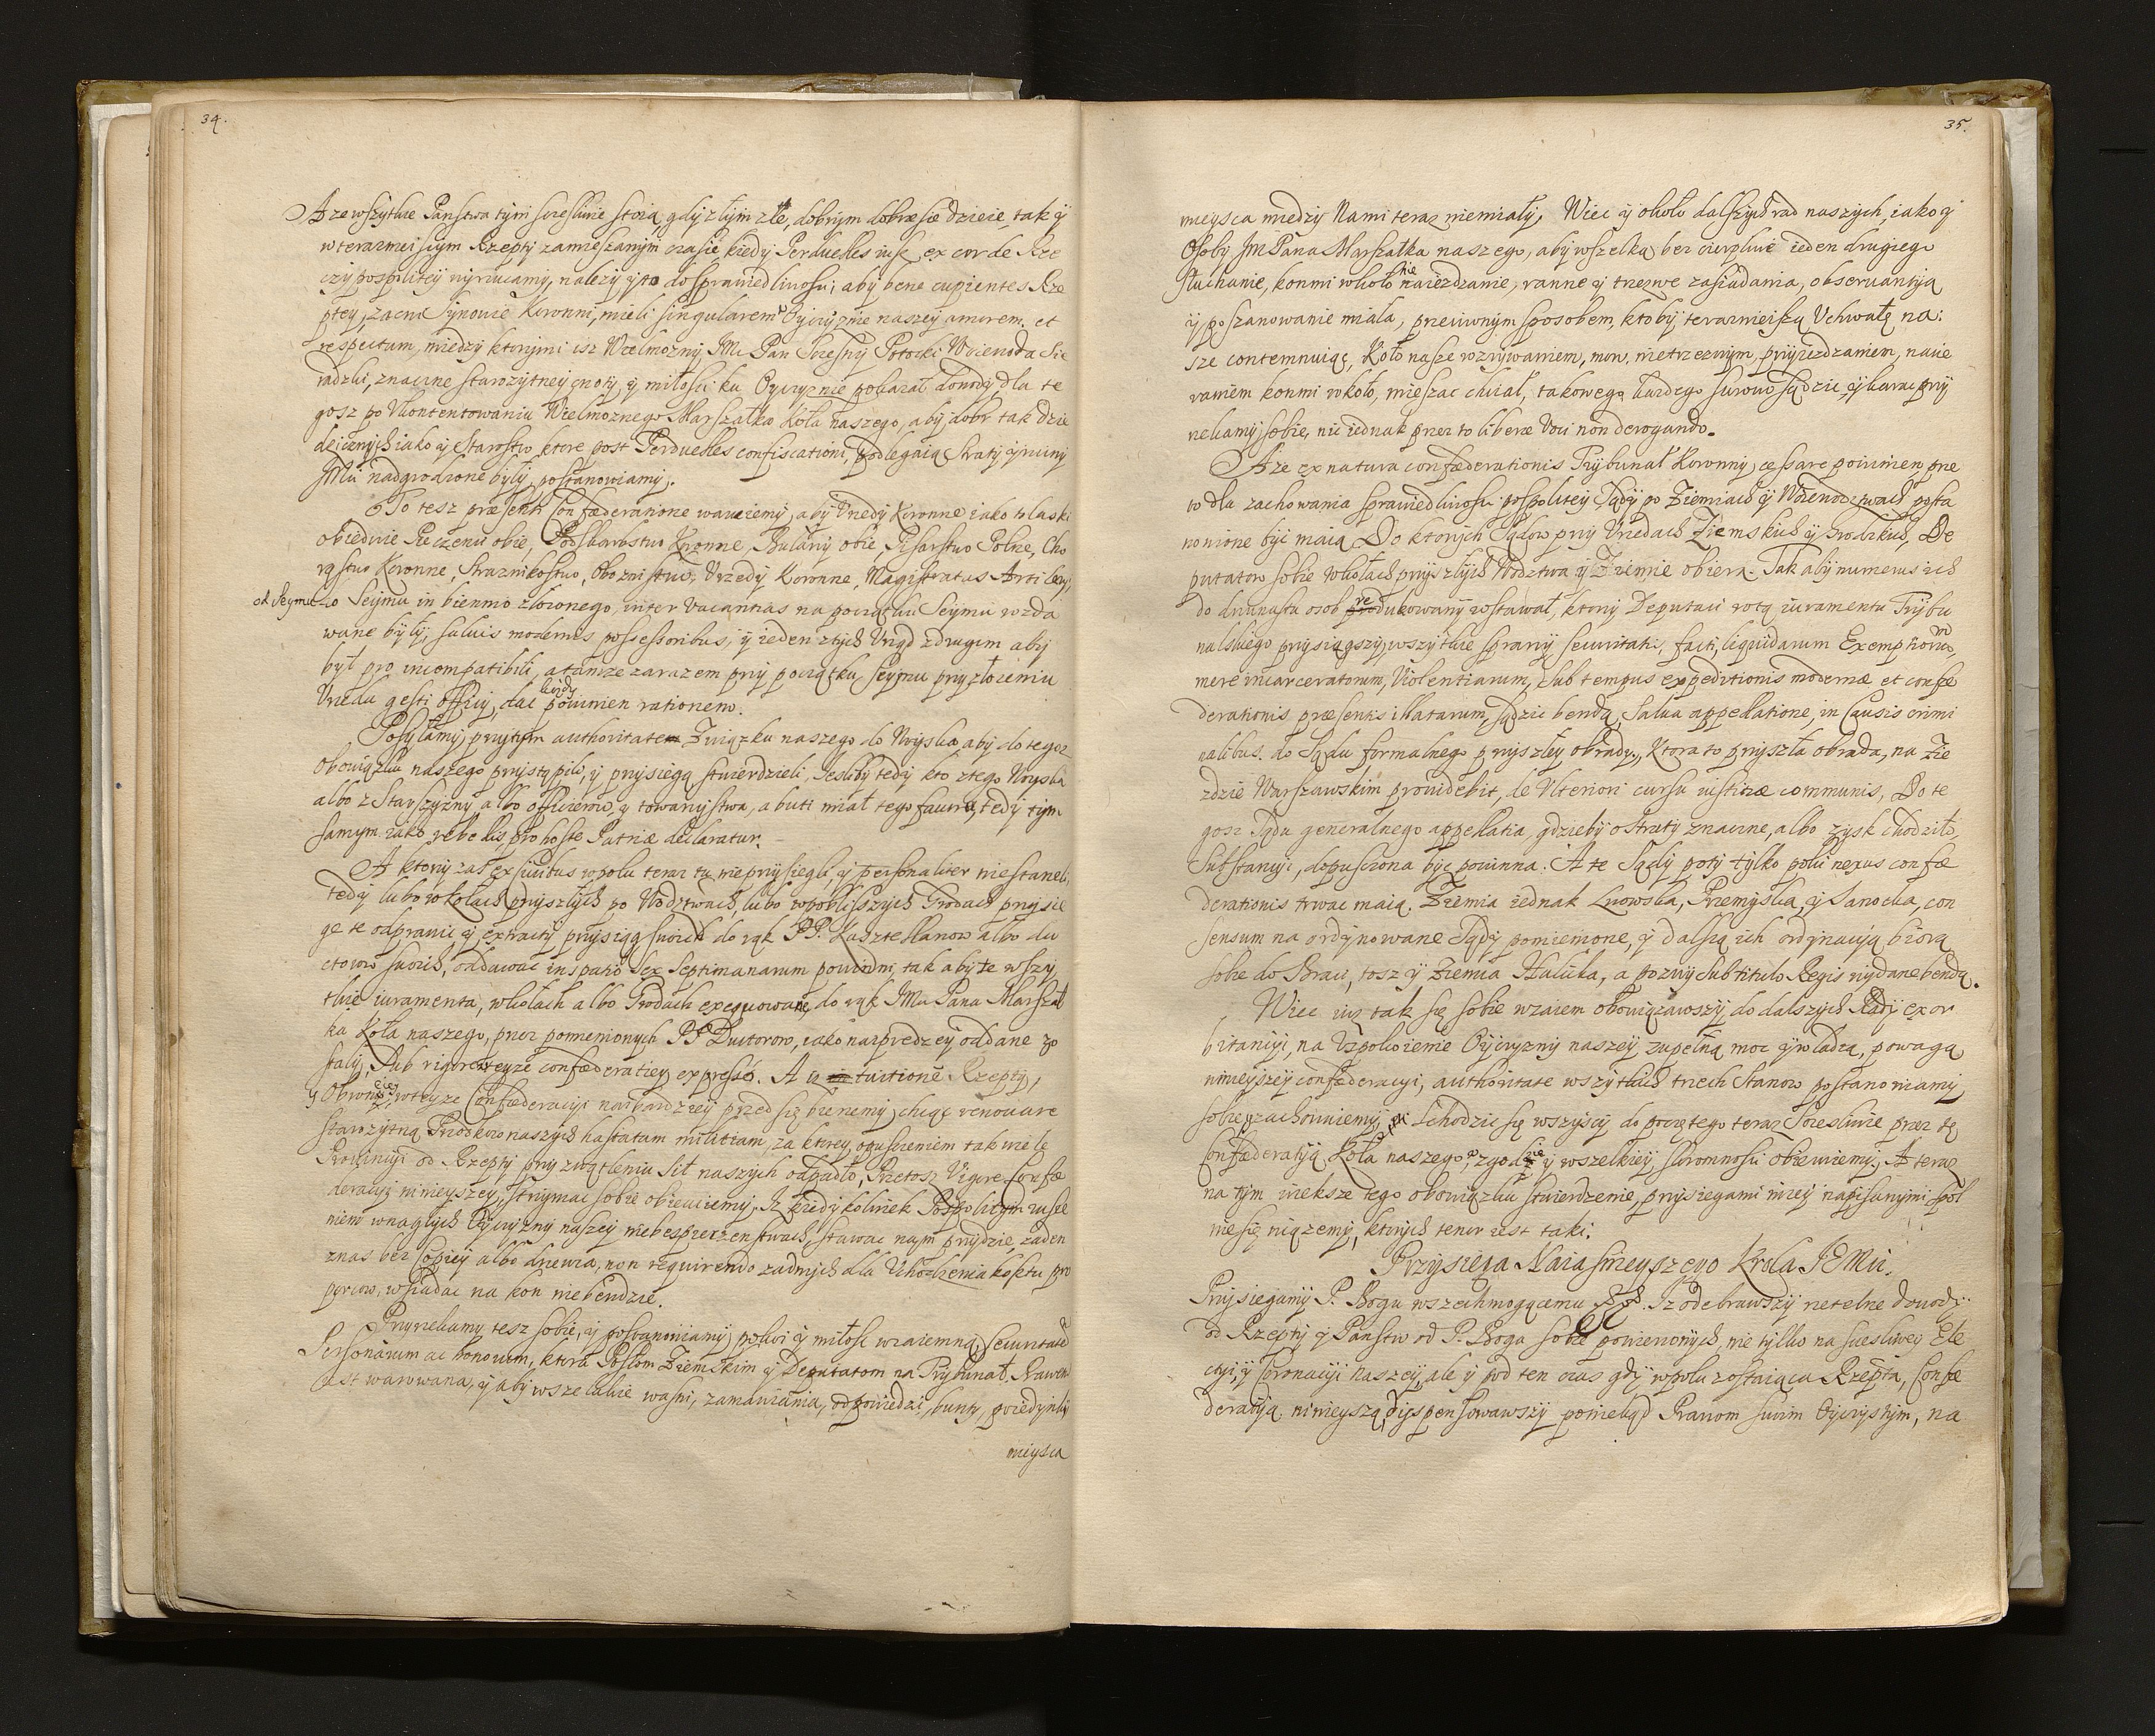 34.
A ze wszytkie Panstwa tym szczesliwie stoią, gdy złym złe, dobrym dobrze się dzieie, tak y
w teraznieiszym Rzepty zamieszanym czasie, kiedy Perduelles iusz ex corde Rze
czypospolitey wyrzucamy, nalezy y to do sprawiedliwosci, aby bene cupientes Rze
ptey, zacni Synowie Koronni, mieli singularem w Oyczyznie naszey amorem et
respectum, miedzy ktorymi isz Wielmozny JMc Pan Szczesny Potocki Woiewoda Sie
radzki, znaczne starozytney cnoty, y miłosci ku Oyczyznie pokazał dowody, dla te
gosz po Ukontentowaniu Wielmoznego Marszałka Koła naszego, aby dobr tak dzie
dzicznych iako y Starostw, ktore post Perduelles confiscationi podlegaią straty y ruiny
JMci nadgrodzone były postanowiamy.
To tesz præsenti Confæderatione waruiemy, aby Urzedy Koronne iako to laski
obiedwie Pieczeni obie, Podskarbstwo Koronne, Buławy obie, Pisarstwo Polne, Cho
rąstwo Koronne, Straznikostwo, Oboznistwo, Urzedy Koronne, Magistratus Artilery,
od Seymu do Seymu in biennio złozonego, inter Vacantias na początku Seymu rozda
wane były, saluis modernis possessoribus, y ieden z tych Urząd z drugim aby
był pro incompatibili, a tamze zarazem przy początku Seymu przy złozeniu
Urzedu gesti officij, dac kazdy powinien rationem.
Posyłamy przytym authoritate Związku naszego do Woyska, aby do tegosz
obowiązku naszego przystąpiło, y przysięgą stwierdzieli, Iesliby tedy kto z tego Woyska
albo z Starszyzny albo officierow, y towarzystwa, a buti miał tego faurą, tedy tym
samym iako rebellis, pro hoste Patriæ declaratur.
A ktorzy zas ex ciuitus w polu teraz tu nie przysiegli, y personaliter nie staneli,
tedy lubo w Kołach przyszłych po Wdztwach, lubo w poblisszych Grodach przysie
ge te odprawic y extracty przysiąg swoich do rąk PP. Kasztellanow albo du
ctorow swoich, oddawac in spatio sex septimanarum powinni, tak aby te wszy
tkie iuramenta, w kołach albo Grodach exequowane, do rąk JMci Pana Marszał
ka Koła naszego, przez pomienionych PP Ductorow, iako nayprędzey oddane zo
stały, sub rigore teyze confæderatiey expresso. A iz in tuitione Rzepty,
y Obronie iey, w teyze Confæderacyi naybardziey przed się bierzemy, chcąc renouare
starozytną Przodkow naszych hastatam militiam, za ktorey opuszczeniem tak wiele
Prowincyi od Rzepty przy zwątleniu sił naszych odpadło, Przetosz Vigore Confæ
deracyi ninieyszey, strzymac sobie obiecuiemy, Iz kiedykolwiek Pospolitym rusze
niem w nagłych Oyczyzny naszey niebespieczenstwach, stawac nam przydzie, zaden
z nas bez Copiey albo drzewca, non requirendo zadnych dla Uchodzenia kosztu pro
porcow, wsiadac na kon niebendzie.
Przyrzekamy tesz sobie, y postanowiamy, pokoi y miłosc wzaiemną, securitatem
Personarum ac bonorum, ktora Posłom Ziemskim y Deputatom na Trybunał, Prawem
iest warowana, y aby wszelakie wasni, zamawiania, odpowiedzi, bunty, poiedynki
mieysca

35.
mieysca miedzy Nami teraz niemiały, Wiec y około dalszych rad naszych, iako y
Osoby JM Pana Marszałka naszego, aby wszelka bez cierpliwie ieden drugiego
słuchanie, konmi w koło nie naiezdzanie, ranne y trzezwe zasiadania, obserwantyą
y poszanowanie miała, przeciwnym sposobem, ktoby teraznieiszą Uchwałę na:
sze contemnuiąc, Koło nasze rozrywaniem, mow nietrzezwym, przyiezdzaniem, naie
raniem konmi w koło, mieszac chciał, takowego kazdego surowo sądzic, y karac przy
rzekamy sobie, nic iednak przez to liberæ Voci non derogando.
A ze ex natura confæderationis Trybunał Koronny cessare powinien, prze
to dla zachowania sprawiedliwosci pospolitey Sądy po Ziemiach y Woiewodztwach posta
nowione byc maią. Do ktorych Sądow przy Urzedach Ziemskich y Grodzkich, De
putatow sobie w kołach przyszłych Wdztwa y Ziemie obiorą. Tak aby numerus ich
do dwunastu osob redukowany zostawał, ktorzy Deputaci rotą iuramentu Trybu
nalskiego przysiągszy, wszytkie sprawy securitatis, facti, liquidarum Exemptionum,
mere incarceratorum, Violentiarum, Sub tempus expeditionis modernæ et confæ
derationis præsentis illatarum, sądzic bendą, Salua appellatione, in Causis crimi
nalibus do Sądu formalnego przyszłey obrady, Ktora to przyszła obrada, na Zie
zdzie Warszawskim prouidebit, de Vlteriori cursu iustitiæ communis, Do te
gosz Sądu generalnego appellatia, gdzieby o straty znaczne, albo zysk chodziło,
Substancyi, dopusczona byc powinna. A te Sądy poty tylko poki nexus confæ
derationis trwac maią. Ziemia iednak Lwowska, Przemyska, y Sanocka, con
sensum na ordynowane Sądy pomienione, y dalszą ich ordynacyą biorą
sobie do Braci, tosz y Ziemia Halicka, a pozwy sub titulo Regis wydane bendą.
Wiec iuz tak się sobie wzaiem obowiązawszy, do dalszych Rady exor
bitancyi, na Uspokoienie Oyczyzny naszey zupełną moc y władzą, powagą
ninieyszey confæderacyi, authoritate wszytkich trzech Stanow postanowiamy,
sobie y zachowuiemy, Schodzic się wszyscy do początego teraz Szczesliwie przez tę
Confæderatyą Koła naszego, w zgodzie y wszelkiey skromnosci obiecuiemy. A teraz
na tym wieksze tego obowiązku stwierdzenie, przysiegami nizey napisanymi spol
nie się wiązemy, ktorych tenor iest taki.
Przysiega Naiasnieyszego Krola JEMci.
Przysiegamy P. Bogu wszechmogącemu Iz odebrawszy rzetelne dowody
od Rzepty y Panstw od P. Boga sobie powierzonych, nie tylko na szczesliwey Ele
ctyi, y Coronacyi naszey, ale y pod ten czas gdy w polu zostaiąca Rzepta, Confæ
deracyą ninieyszą, dyspensowawszy poniekąd Prawom swoim Oyczystym, na